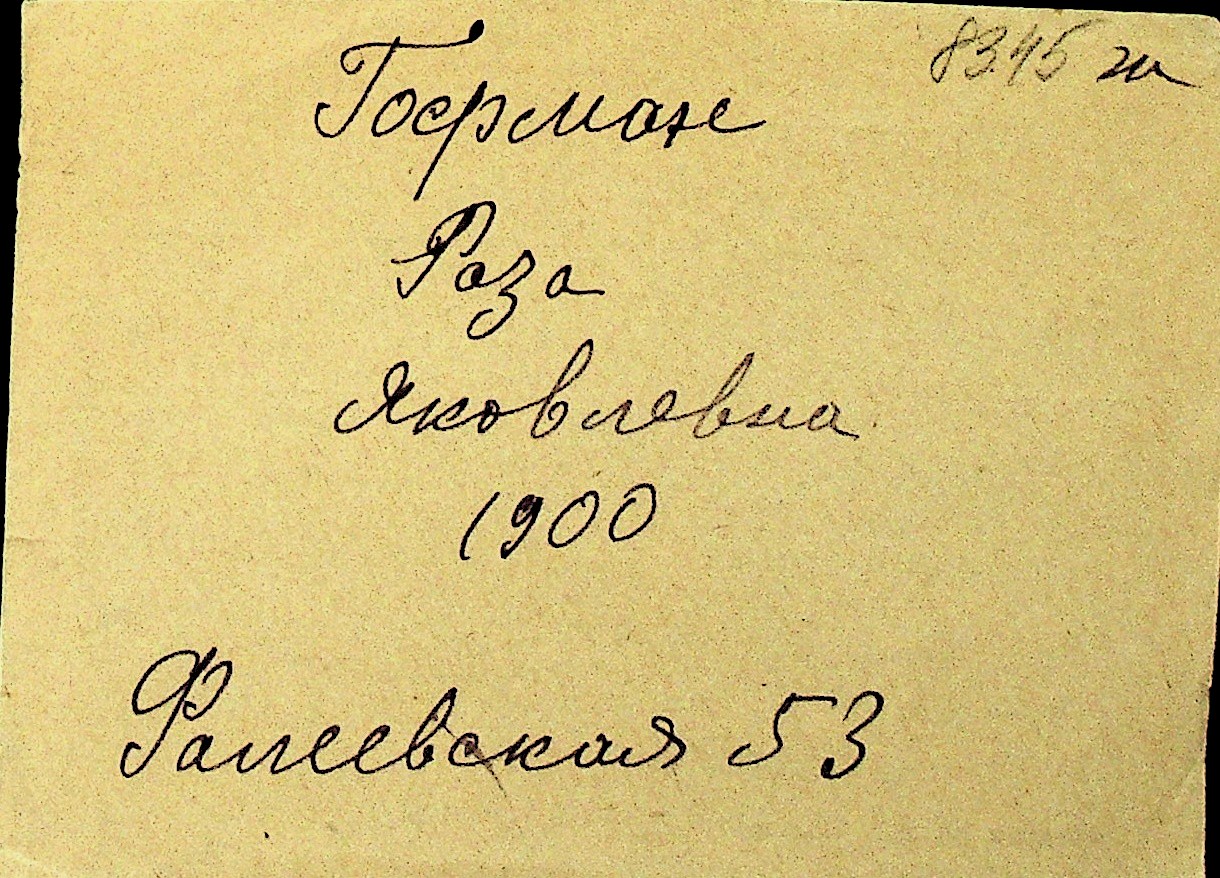 8345
Гофман
Роза
Яковлевна
1900
Фалеевская 53